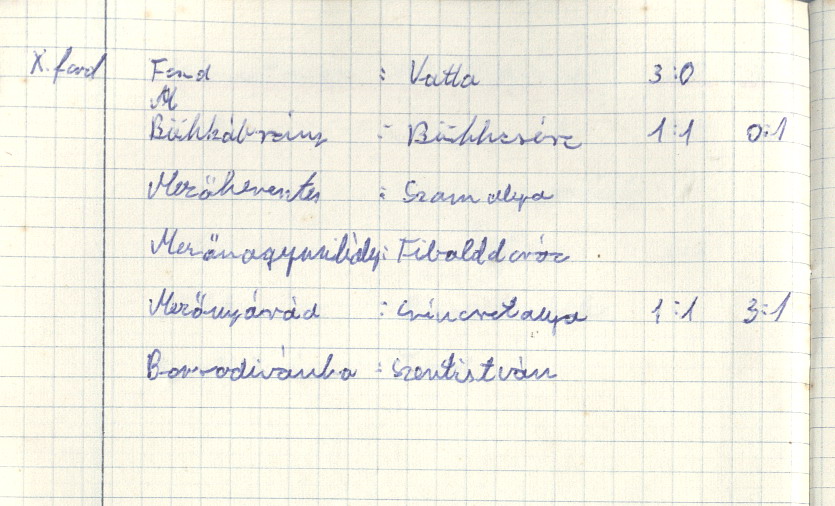 X. ford Fend : Vatta 3:0
M
Bükkábrány : Bükkzsérc 1:1 0:1
Mezőkeresztes : Szomolya
Mezőnagymihály : Tibolddaróc
Mezőnyárád : Cserépváralja 1:1 3:1
Borsodivánka : Szentistván